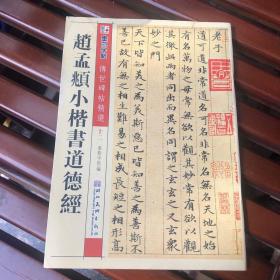 趙孟頫小楷書道德經
傳世碑帖精選
老子
道可道非常道名可名非常名無名天地之
始有名萬物之母常無欲以觀其妙常有欲以觀
其徼此兩者同出而異名同謂之玄玄之又玄衆
妙之門
天下皆知美之為美斯惡已皆知善之為善斯不
善已故有無相生難易相成長短之相形